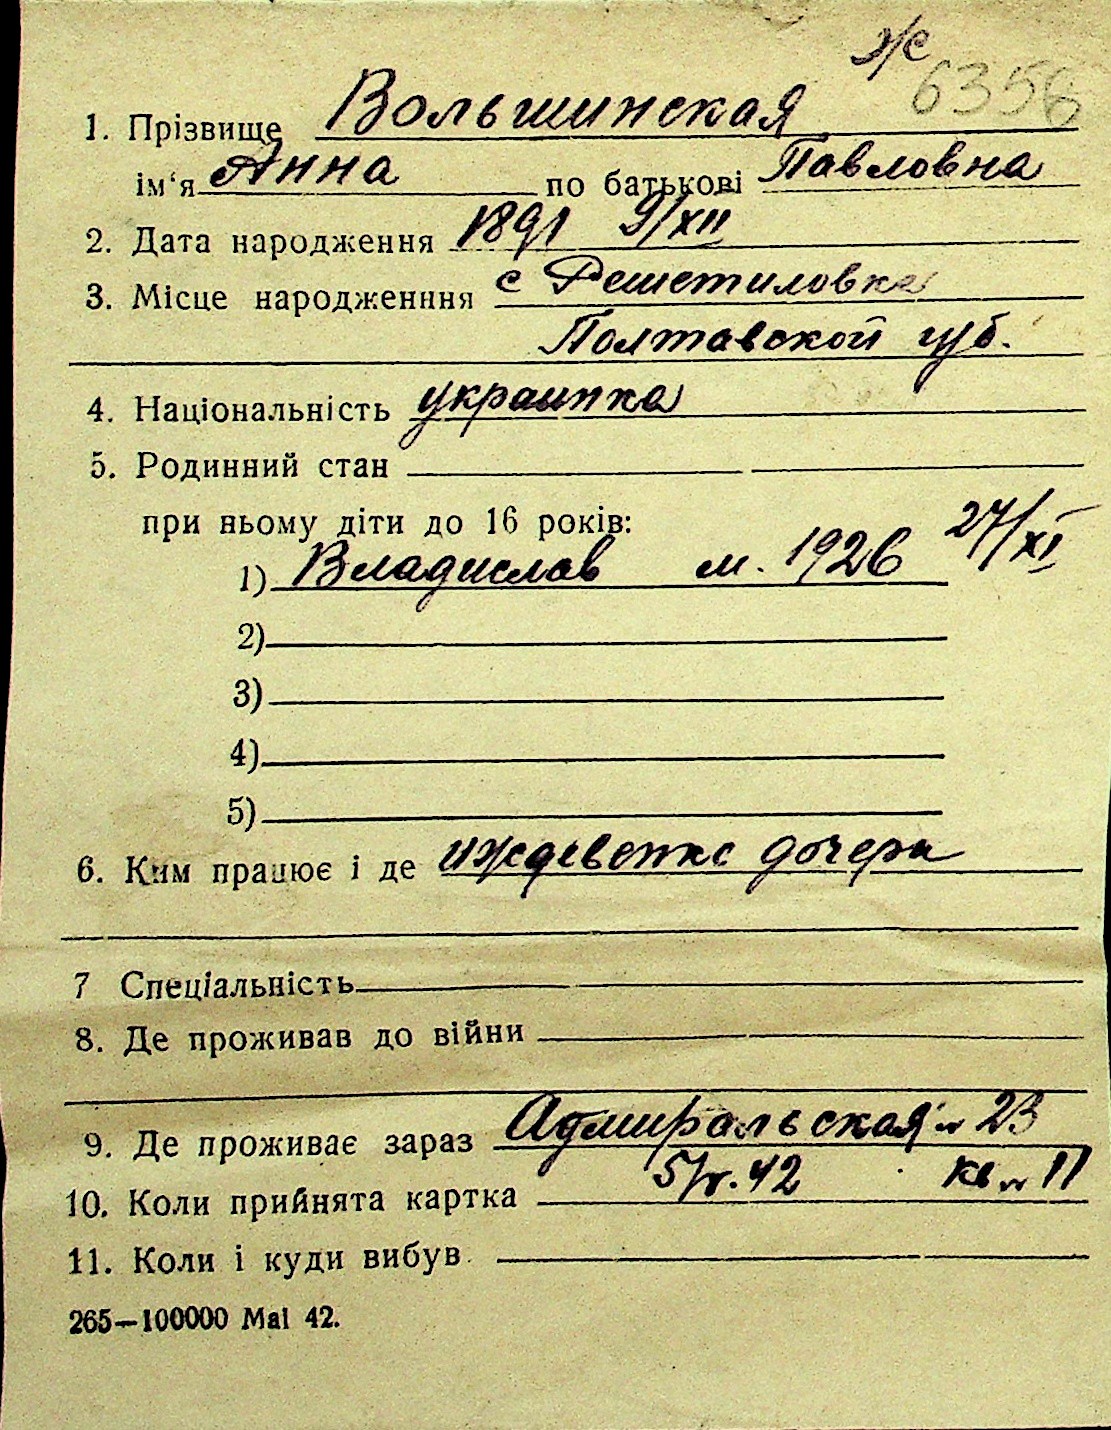 ж
6356
1. Прізвище Вольшинская
ім‘я Анна по батькові Павловна
2. Дата народження 1891 9/XII
3. Місце народженння с Решетиловка
Полтавской губ.
4. Національність украинка
5. Родинний стан
при ньому діти до 16 років:
1) Владислав м. 1926 27/XI
2)
3)
4)
5)
6. Ким працює і де иждевенка дочери
7 Спеціальність
8. Де проживав до війни
9. Де проживає зараз Адмиральская № 23
кв № 11
10. Коли прийнята картка 5/V.42
11. Коли і куди вибув
265—100000 Mai 42.